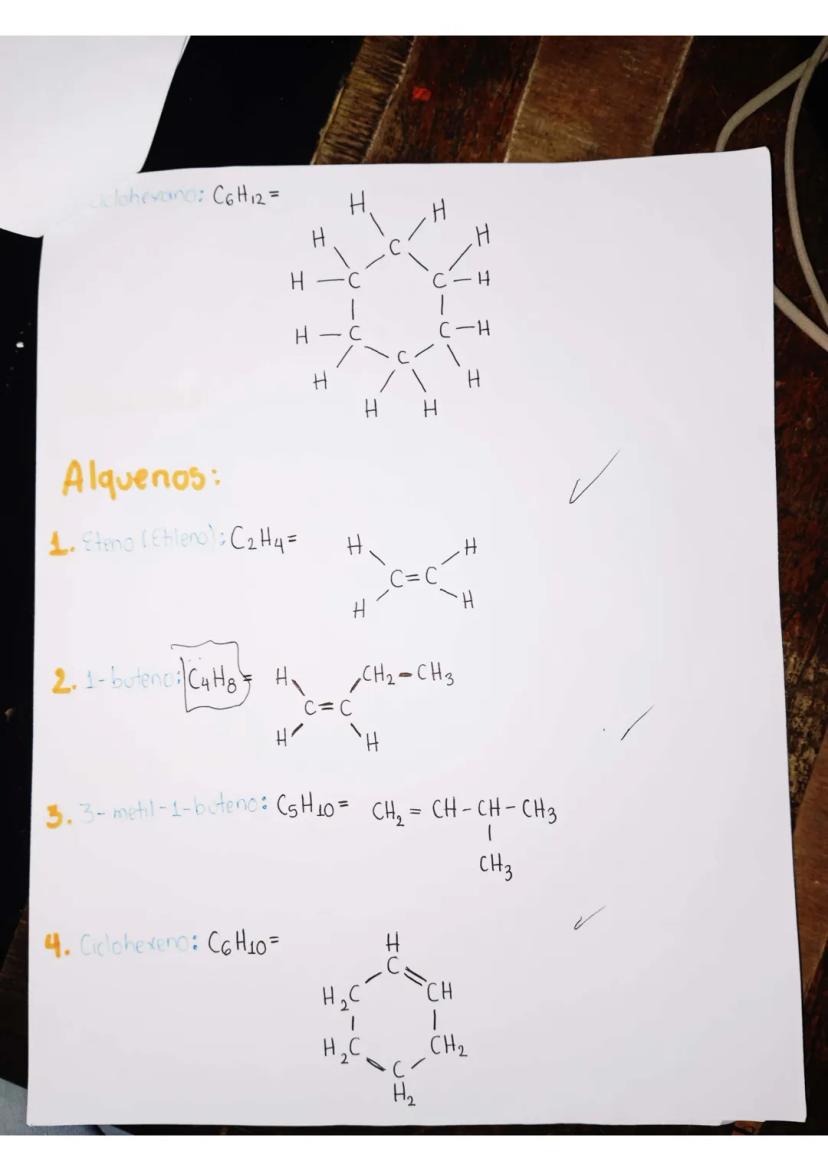 Ciclohexano: C₆H₁₂=
H H
H C H
H — C C — H
H — C C — H
H C H
H H
Alquenos:
1. Eteno (Etileno): C₂H₄=
H H
C = C
H H
2. 1-buteno: C₄H₈=
H CH₂ - CH₃
C = C
H H
3. 3-metil-1-buteno: C₅H₁₀= CH₂ = CH - CH - CH₃
|
CH₃
4. Ciclohexeno: C₆H₁₀=
H
C
H₂C CH
H₂C CH₂
C
H₂